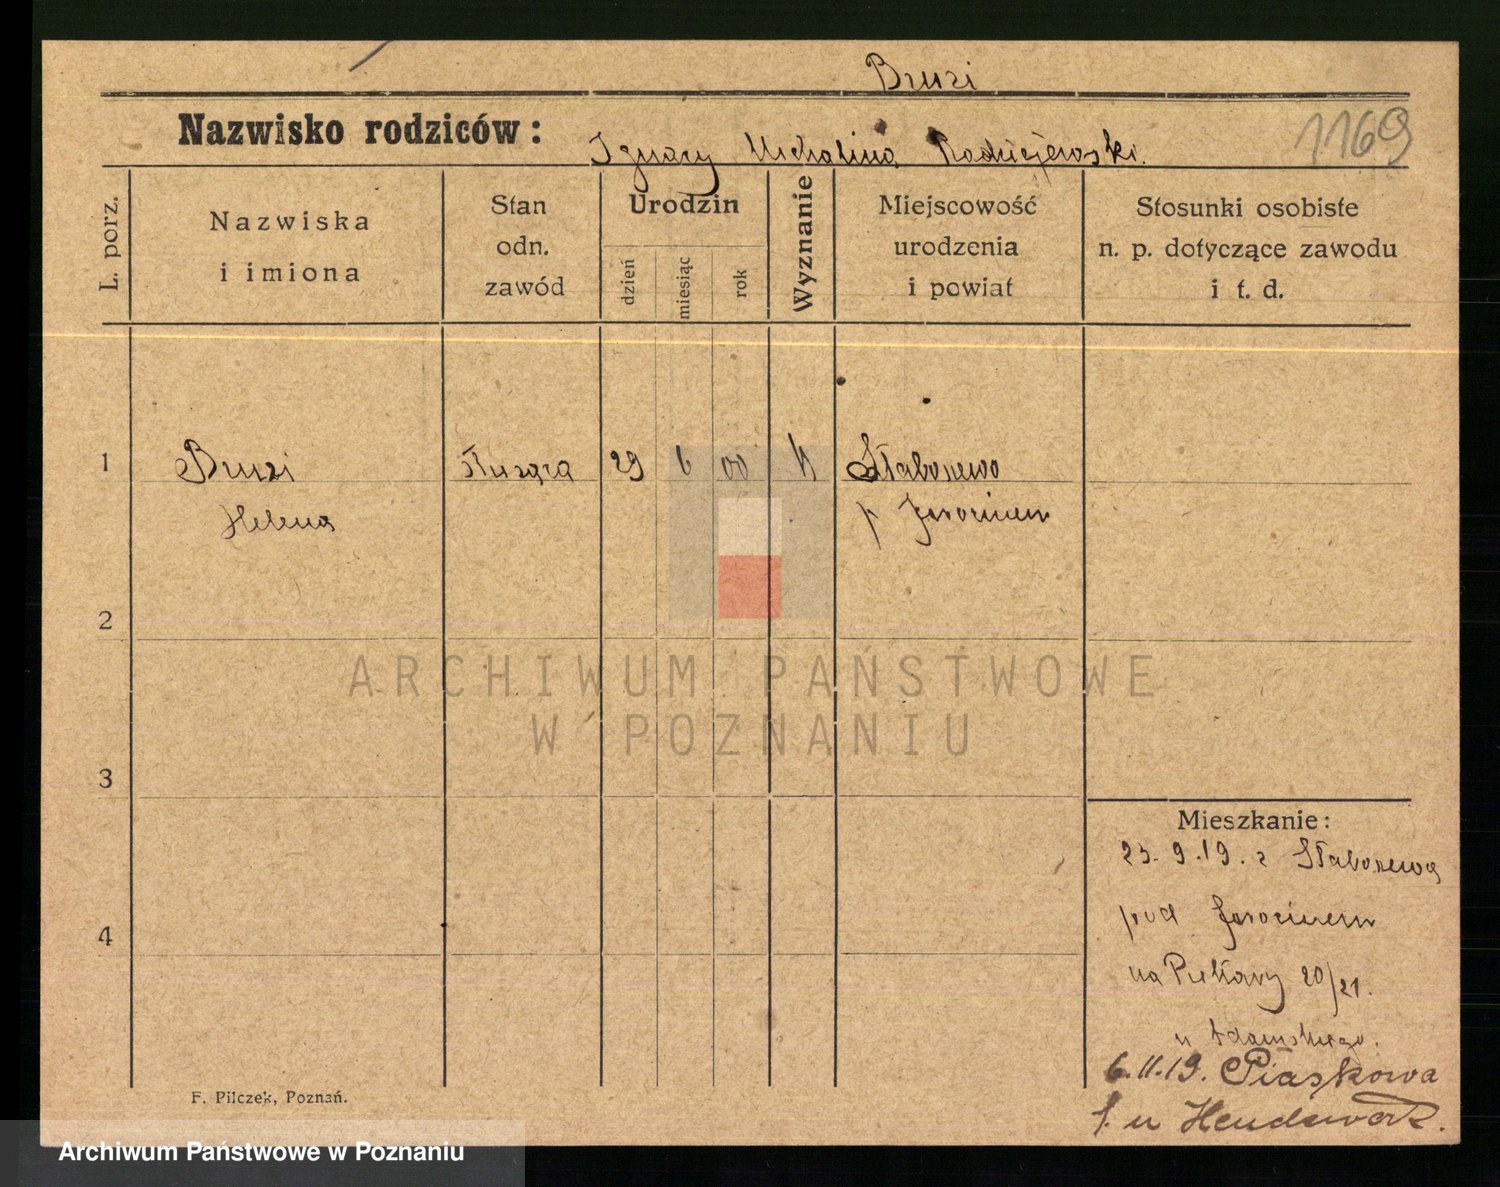 Bruzi
Nazwisko rodziców: Ignacy Michalina Radziejewski.
1169
L. porz.
Nazwiska
i imiona
Stan
odn.
zawód
Urodzin
dzień
miesiąc
rok
Wyznanie
Miejscowość
urodzenia
i powiat
Stosunki osobiste
n. p. dotyczące zawodu
i t. d.
1
Bruzi
Helena
służąca
29
6
00
K
Słaboszewo
p Jarocinem
2
ARCHIWUM PAŃSTWOWE
W POZNANIU
3
4
Mieszkanie:
23.9.19. z
pod Jarocinem
na Piekary 20/21.
u Adamskiego.
6.11.19. Piaskowa
1. u
F. Pilczek, Poznań.
Archiwum Państwowe w Poznaniu